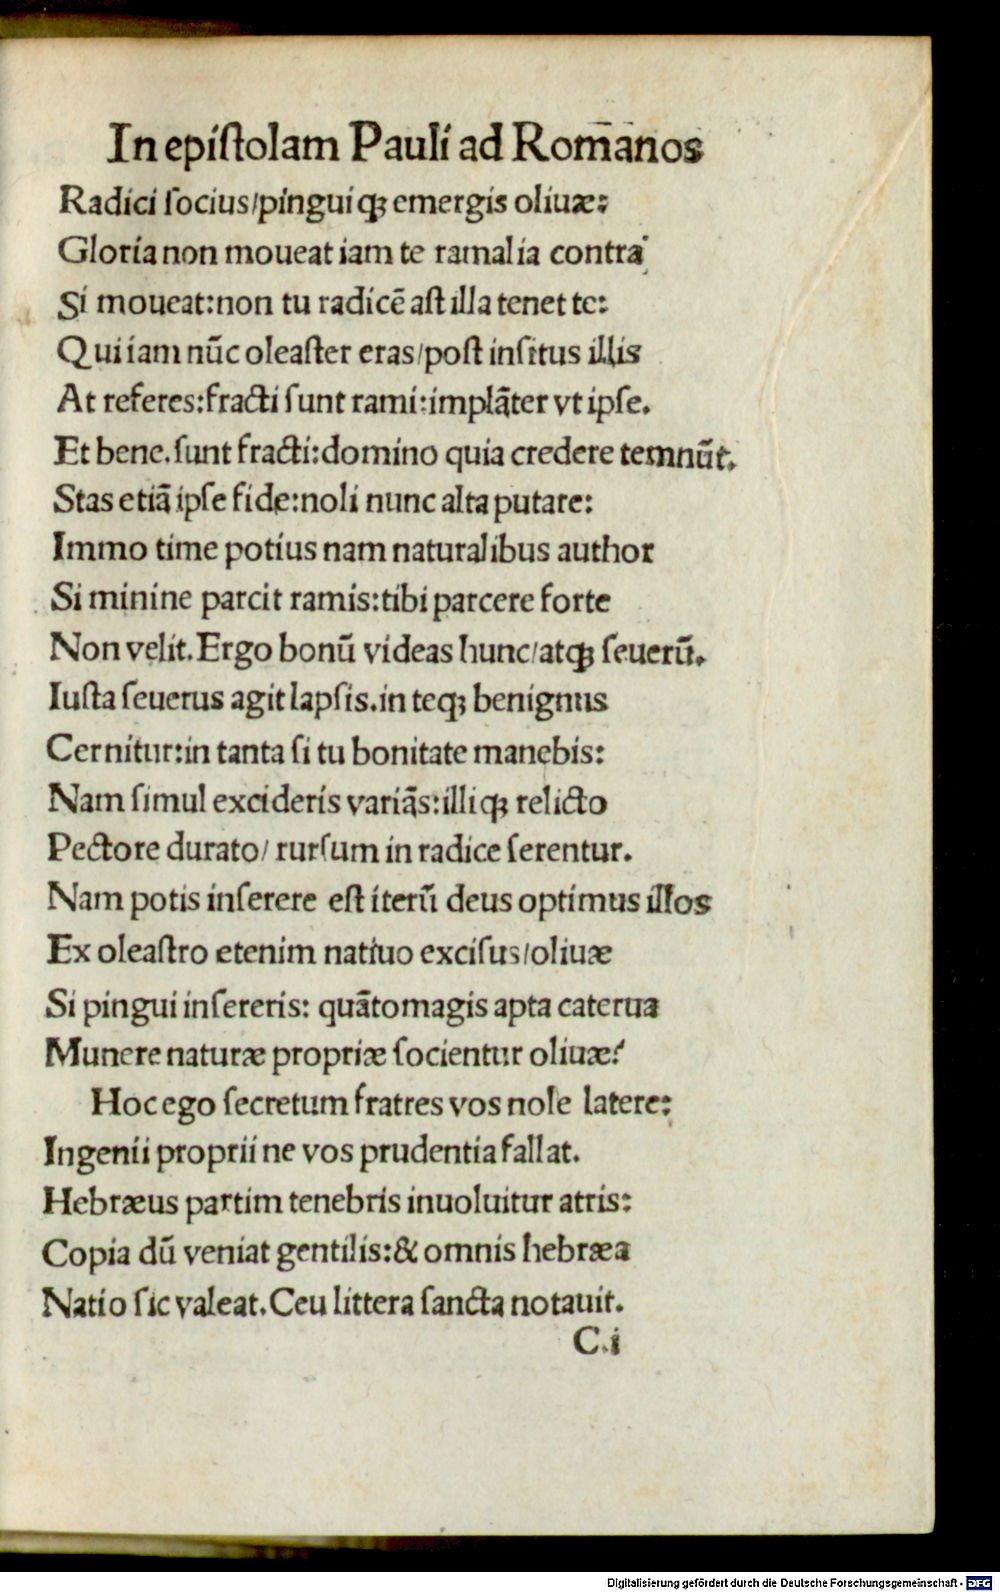 In epiſtolam Pauli ad Rom̄anos
Radici ſocius/pinguiqꝫ emergis oliuæ:
Gloria non moueat iam te ramalia contra
Si moueat:non tu radicē aſt illa tenet te:
Qui iam nūc oleaſter eras/poſt inſitus illis
At referes:fracti ſunt rami:implāter vt ipſe.
Et bene.ſunt fracti:domino quia credere temnūt.
Stas etiā ipſe fide:noli nunc alta putare:
Immo time potius nam naturalibus author
Si minine parcit ramis:tibi parcere forte
Non velit.Ergo bonū videas hunc/atqꝫ ſeuerū.
Iuſta ſeuerus agit lapſis.in teqꝫ benignus
Cernitur:in tanta ſi tu bonitate manebis:
Nam ſimul excideris variās:illiqꝫ relicto
Pectore durato/ rurſum in radice ſerentur.
Nam potis inſerere eſt iterū deus optimus illos
Ex oleaſtro etenim natiuo exciſus/oliuæ
Si pingui inſereris: quātomagis apta caterua
Munere naturæ propriæ ſocientur oliuæ?
Hoc ego ſecretum fratres vos nole latere:
Ingenii proprii ne vos prudentia fallat.
Hebræus partim tenebris inuoluitur atris:
Copia dū veniat gentilis:& omnis hebræa
Natio ſic valeat.Ceu littera ſancta notauit.
C.i
Digitalisierung gefördert durch die Deutsche Forschungsgemeinschaft - DFG